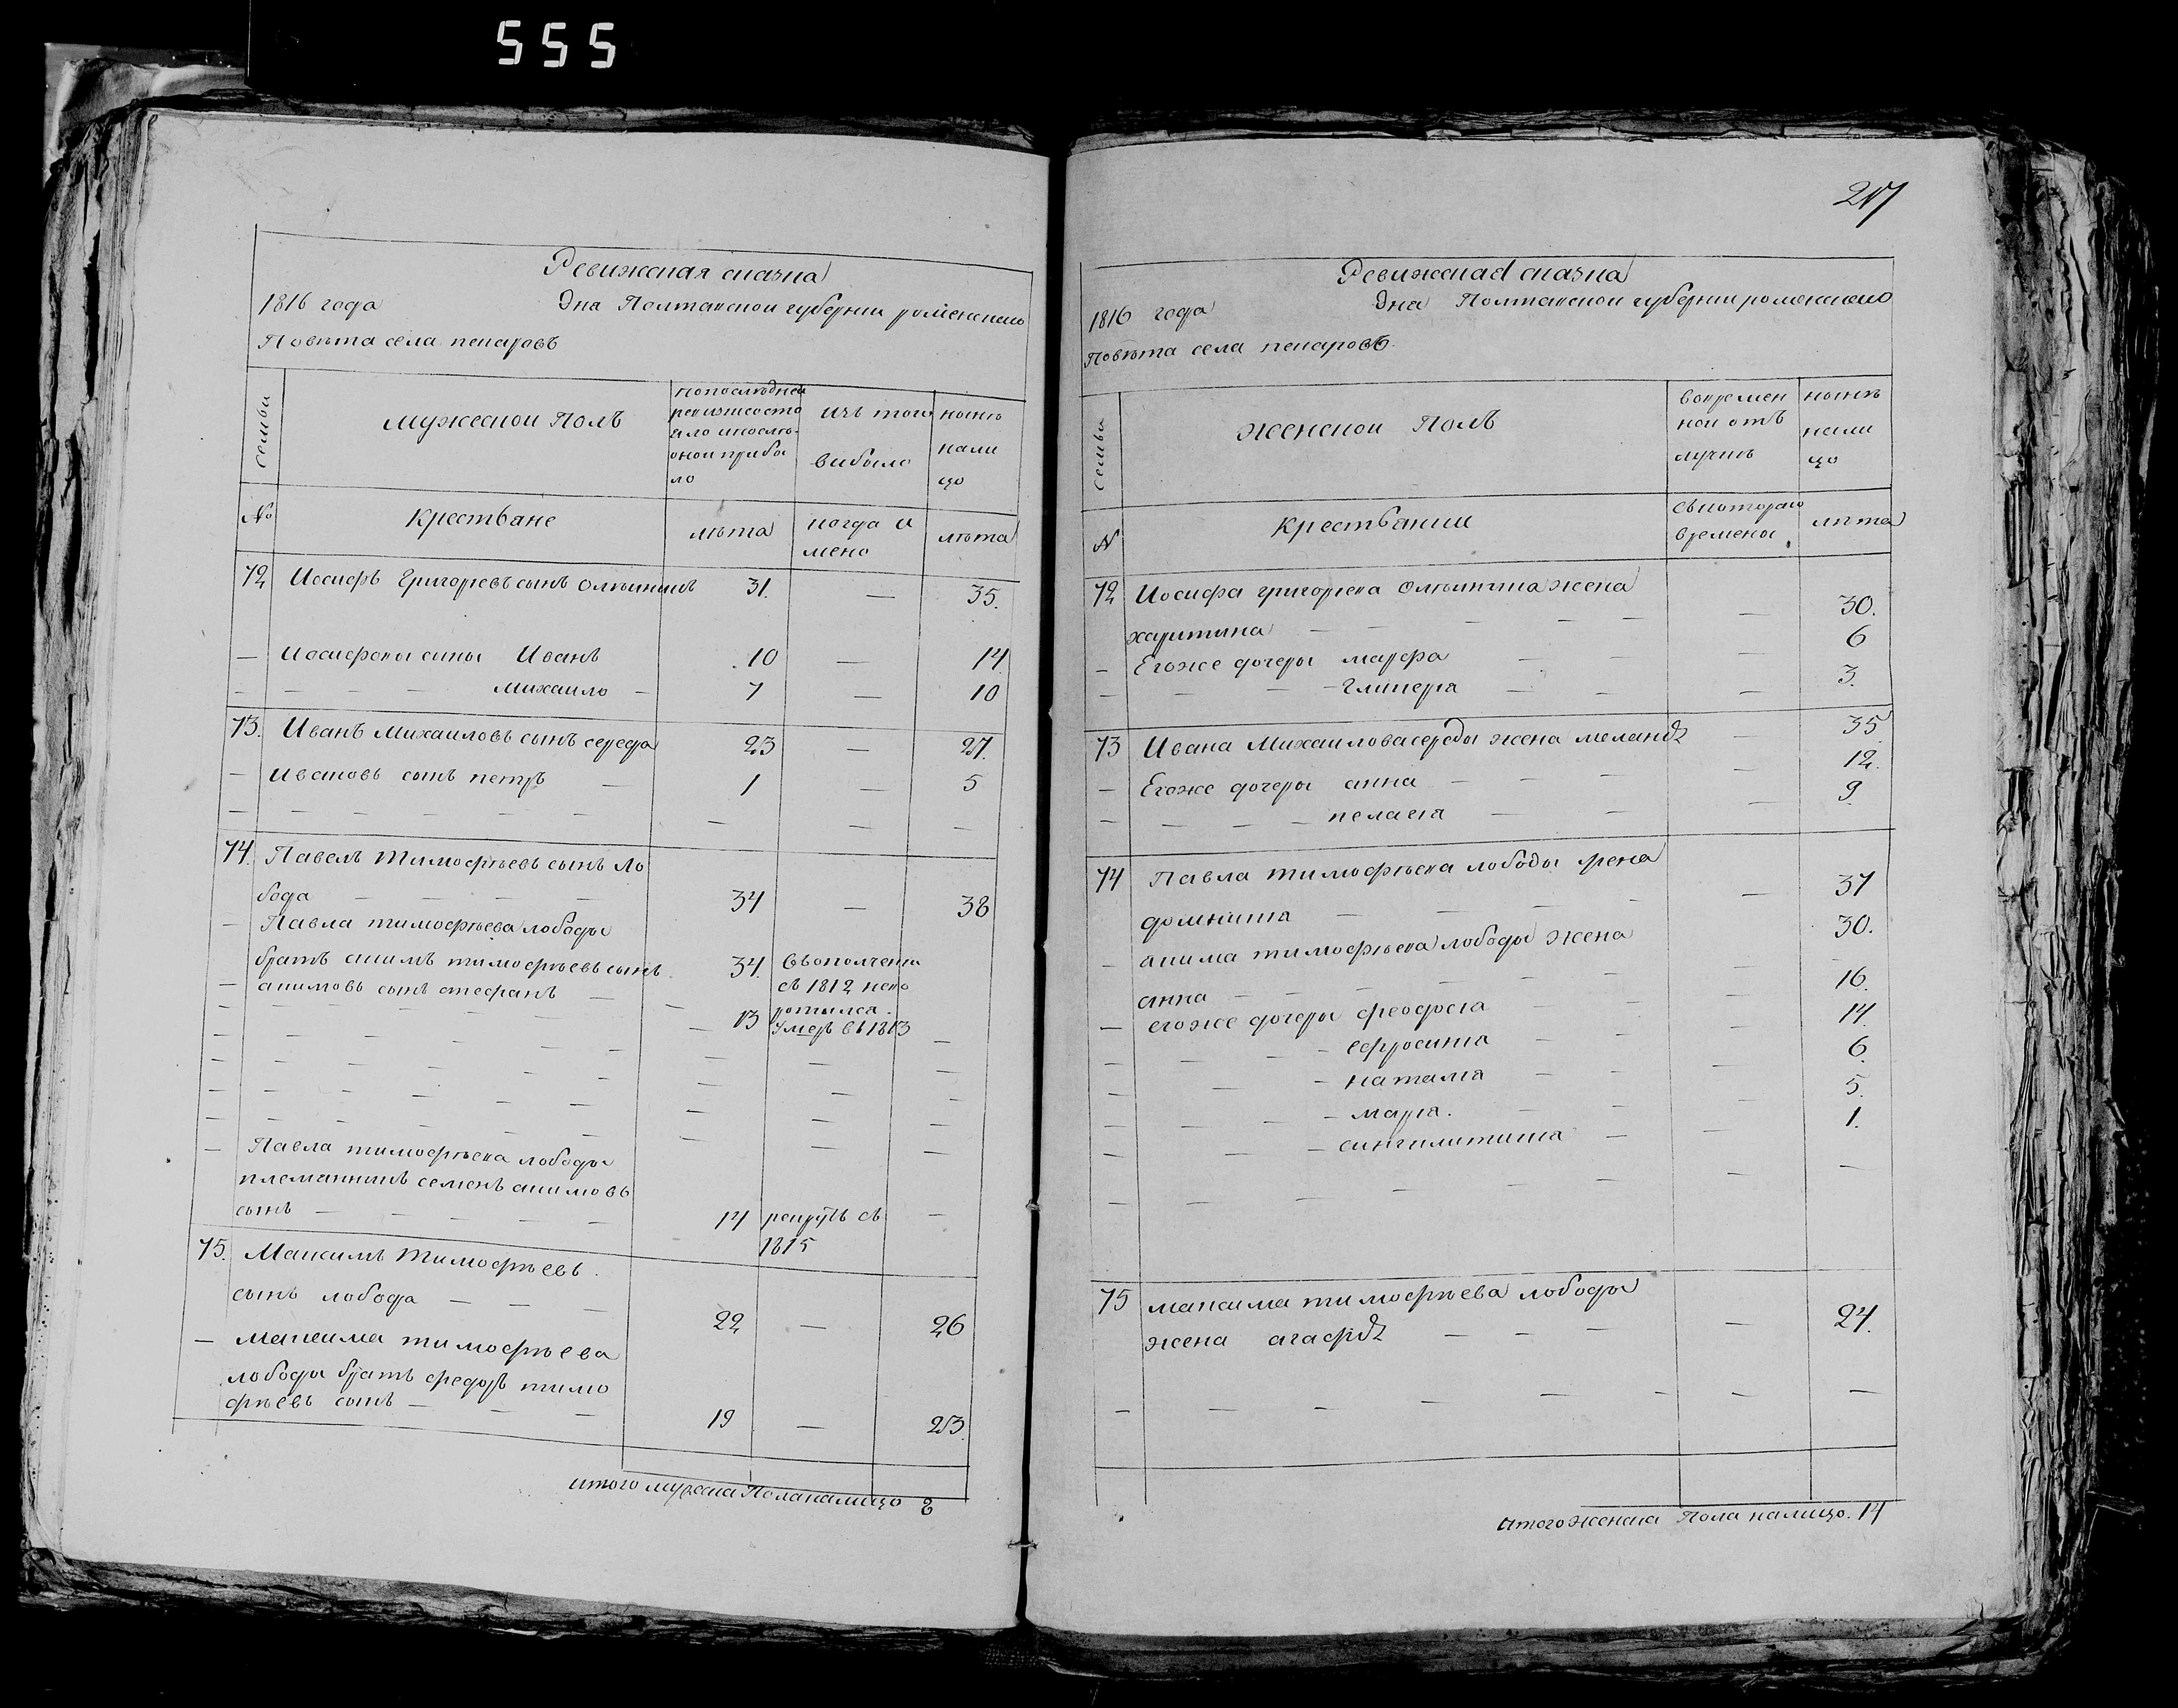 555
Ревижская сказка
1816 года Дна Полтавской губернии роменского
Повѣта села пекаровъ
семьи
мужескои Полъ
попослѣдней ревизіи состо яло ипослѣ онои прибы ло
Изъ того выбыло
нынѣ нали цо
№
Крестьяне
лѣта
когда и мено
лѣта
72 Иосифъ Григорьевъ сынъ 31. — 35.
— Иосифовы сины Иванъ 10 — 14
— — — — Михаило — 7 — 10
73. Иванъ Михаиловъ сынъ середа 23 — 27.
— Ивановъ сынъ петръ — 1 — 5
74. Павелъ Тимофѣевъ сынъ ло
бода — — — — 34 — 38
— Павла тимофѣева лободы
братъ акимъ тимофѣевъ сынъ 34. въ ополчении
съ 1812 нево
ротился.
— акимовъ сынъ стефанъ — 13 умеръ въ 1813
— Павла тимофѣева лободы
племянникъ семенъ акимовъ
сынъ — — — — 14 рекрутъ съ —
1815
75. Максимъ Тимофѣевъ
сынъ лобода — — — 22 — 26
— максима тимофѣева
лободы братъ федоръ тимо
фѣевъ сынъ — — — 19 — 23.
итого мужска Пола налицо 8
217
Ревижская сказка
1816 года Дна Полтавской губернии роменского
Повѣта села пекаровъ.
семьи
женскои Полъ
вовремен нои отъ лучкѣ
нынѣ нали цо
№
Крестьянки
съ котораго времены
лѣта
72 Иосифа григорьева жена
харитина — — — — — — 30.
— Егоже дочеры марфа — — — 6
— — — — гликерия — — — 3.
73 Ивана Михаилова середы жена меланія — 35
— Егоже дочеры анна — — — — 12.
— — — — пелагея — — — 9
74 Павла тимофѣева лободы жена
домникия — — — — — 37
— акима тимофѣева лободы жена
анна — — — — 30.
— егоже дочеры феодосия — — — 16.
— — — ефросиния — — — 14.
— — — наталия — — — 6.
— — — мария. — — — 5.
— — — синклитикия — — 1.
75 максима тимофѣева лободы
жена агафія — — — — 24.
итого женска Пола налицо. 14